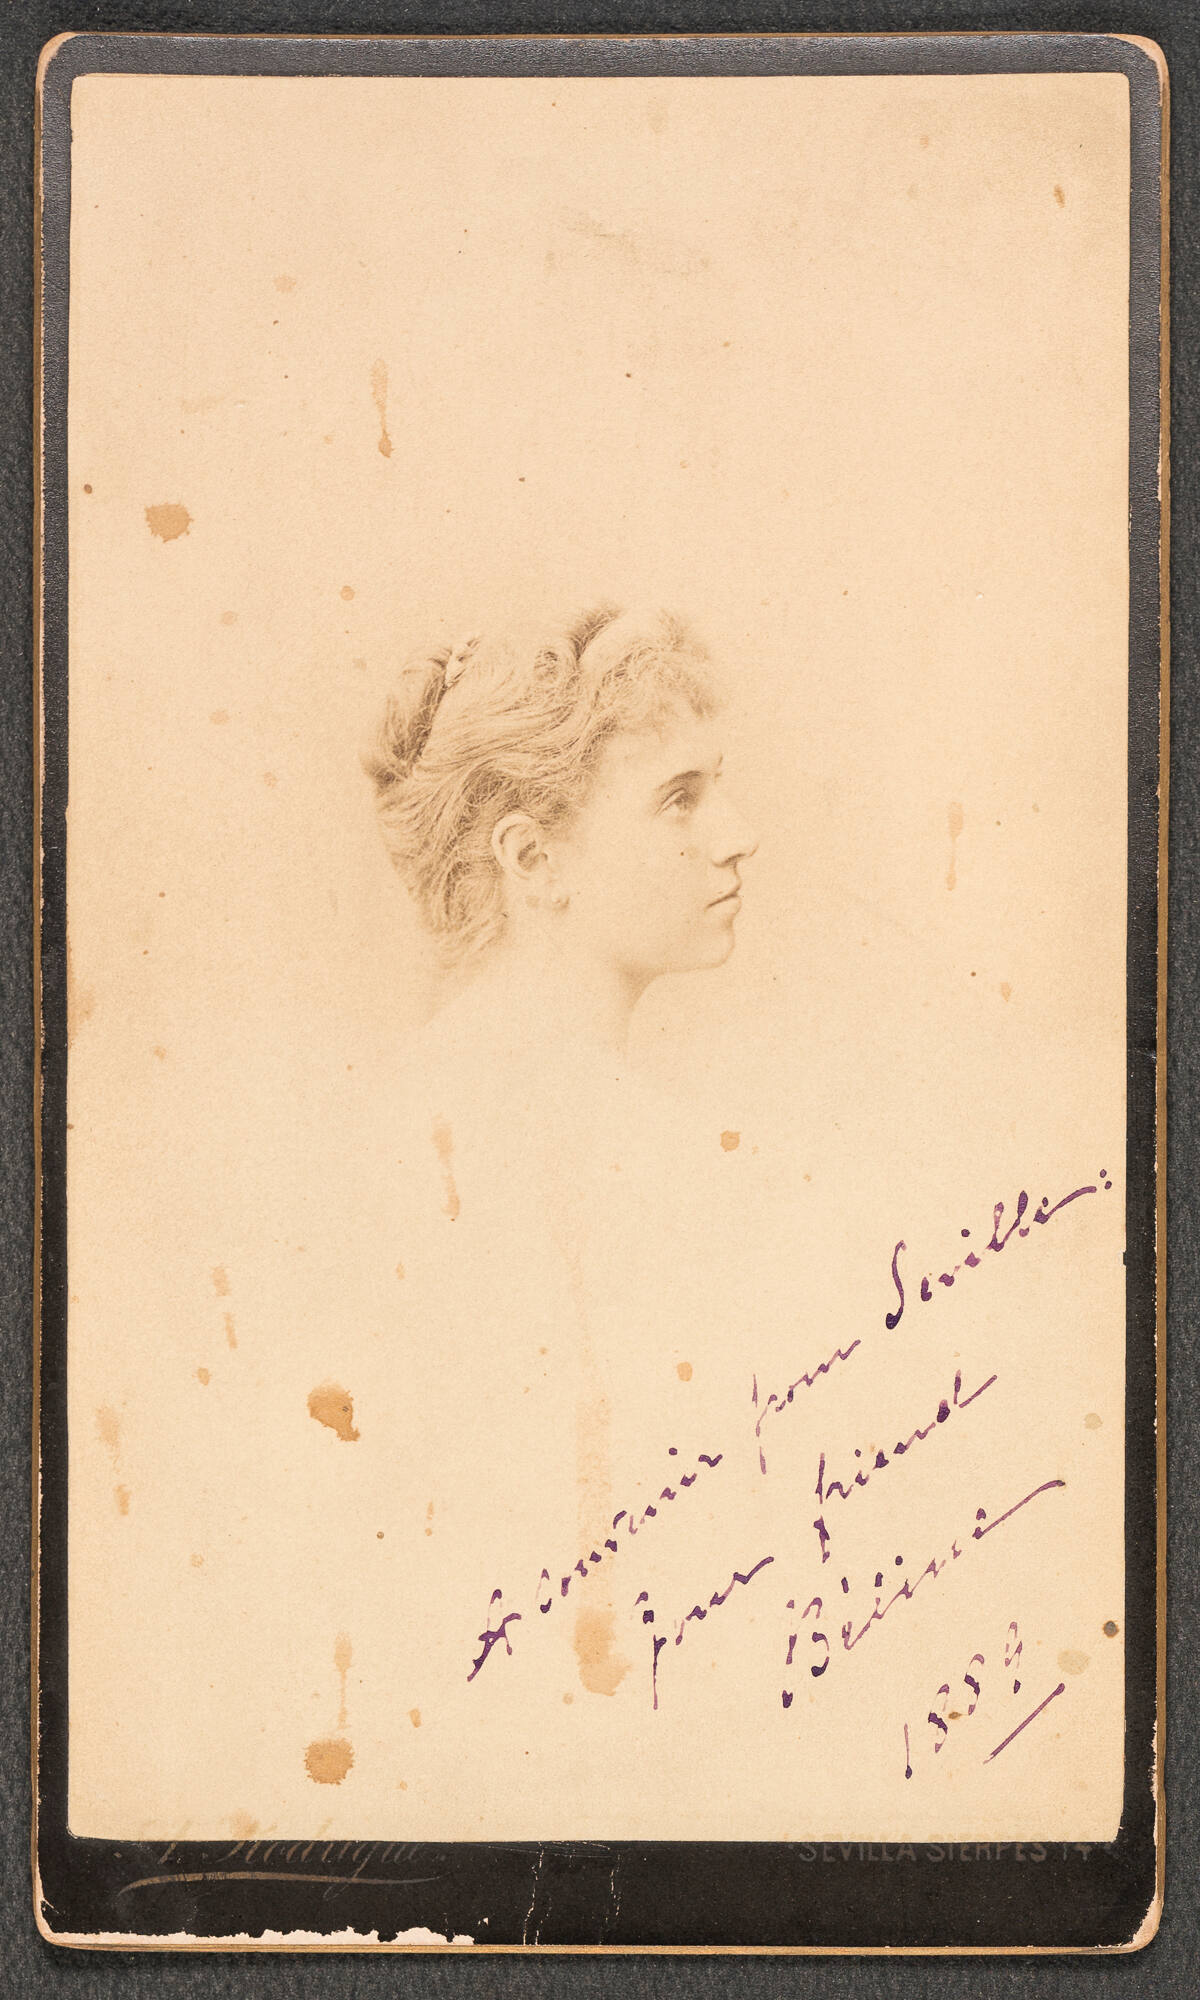 A souvenir from Seville:
your friend
1889
A. Rodrigue
SEVILLA SIERPES 14